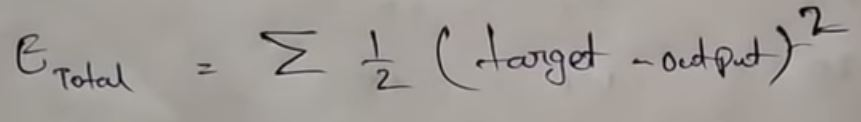 E Total = Σ 1/2 (target - output)²